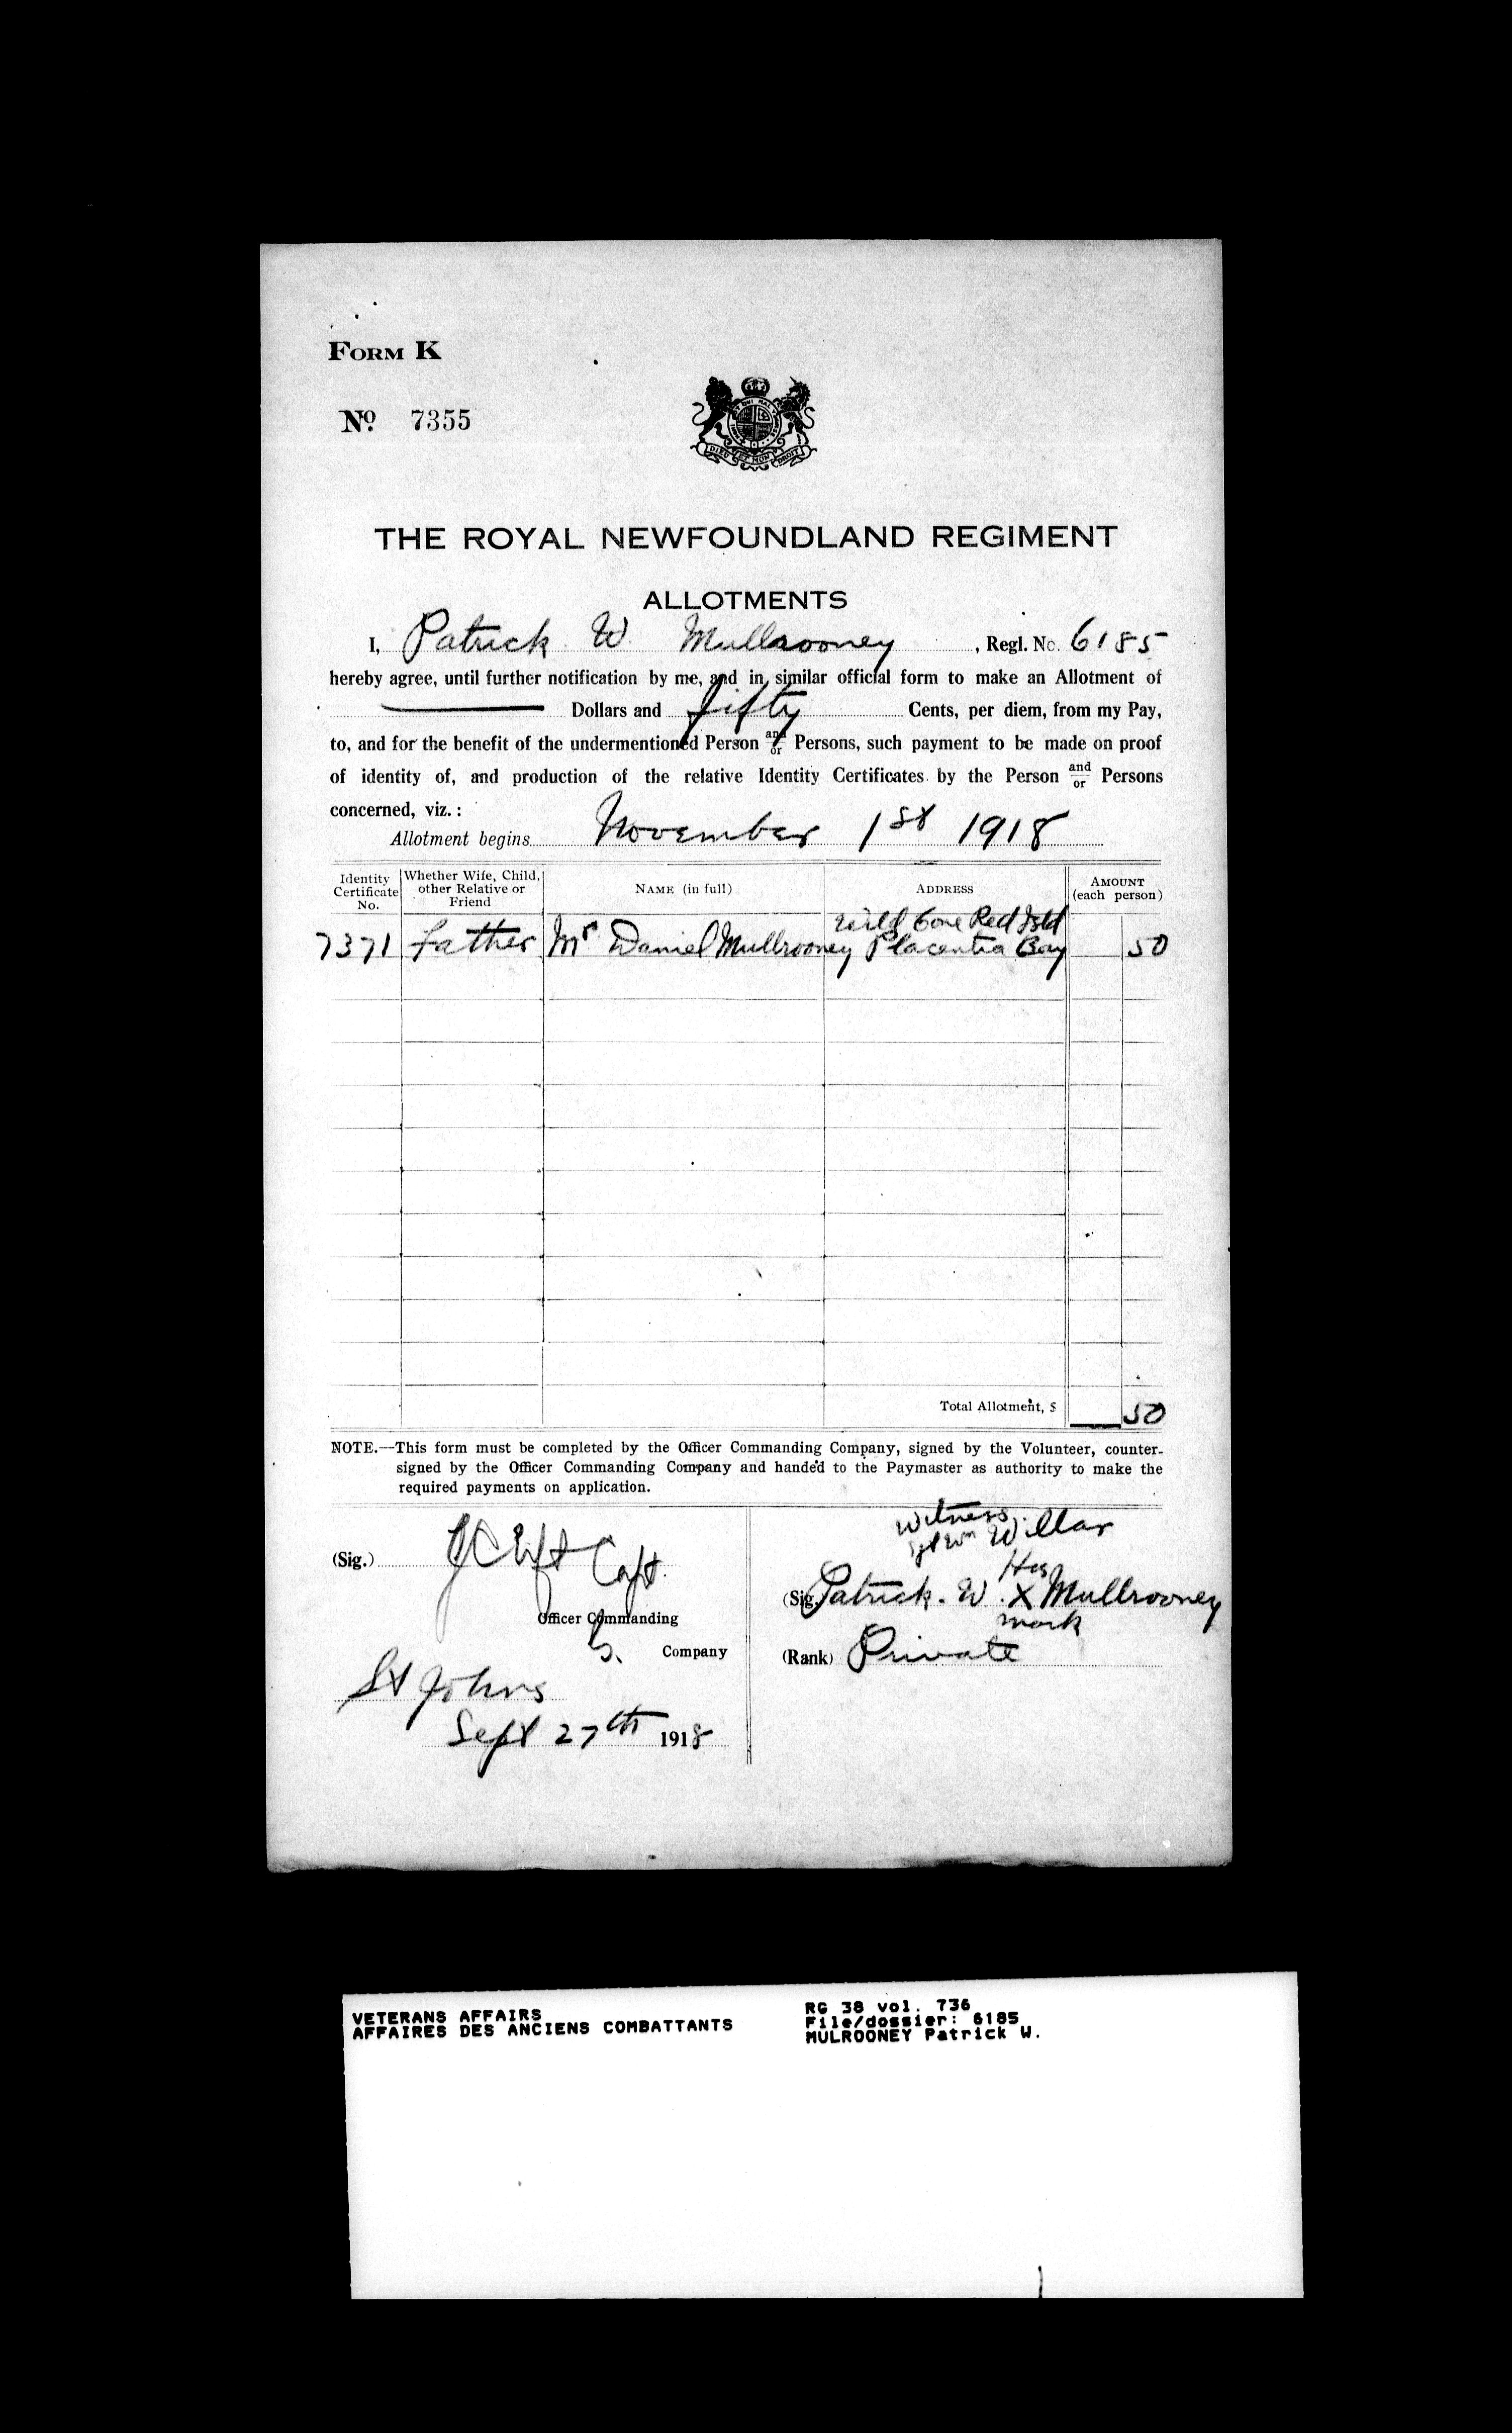 FORM K
No. 7355
DIEU ET MON DROIT
THE ROYAL NEWFOUNDLAND REGIMENT
ALLOTMENTS
I, Patrick W Mullrooney, Regl. No. 6185
hereby agree, until further notification by me, and in similar official form to make an Allotment of
—— Dollars and fifty Cents, per diem, from my Pay,
to, and for the benefit of the undermentioned Person and/or Persons, such payment to be made on proof
of identity of, and production of the relative Identity Certificates by the Person and/or Persons
concerned, viz.:
Allotment begins November 1st 1918
Identity Certificate No. Whether Wife, Child, other Relative or Friend NAME (in full) ADDRESS AMOUNT (each person)
Red Isld
7371 Father Mr Daniel Mullrooney Placentia Bay 50
Total Allotment, $ 50
NOTE.—This form must be completed by the Officer Commanding Company, signed by the Volunteer, counter-
signed by the Officer Commanding Company and handed to the Paymaster as authority to make the
required payments on application.
(Sig.) Capt.
Officer Commanding
Company
St Johns
Sept 27th 1918
Witness
Wm
His
(Sig.) Patrick. W. X Mullrooney
mark
(Rank) Private
VETERANS AFFAIRS
AFFAIRES DES ANCIENS COMBATTANTS
RG 38 vol. 736
File/dossier: 6185
MULROONEY Patrick W.